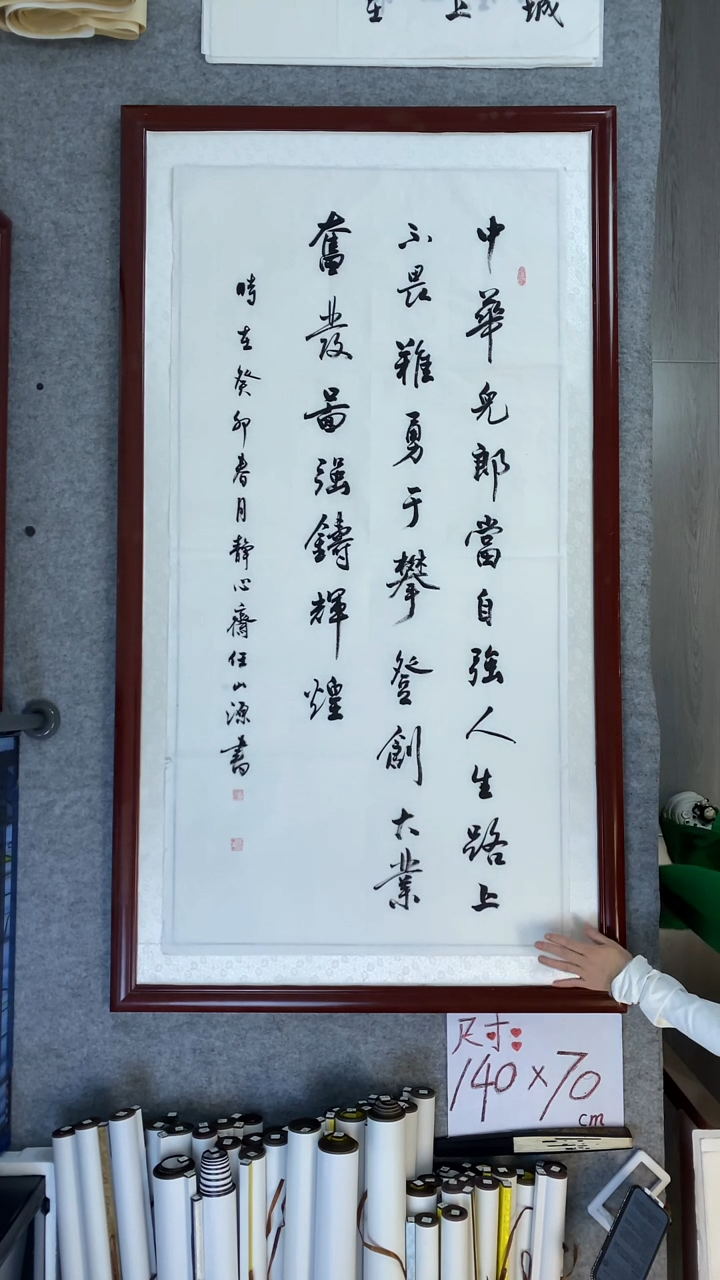 中華兒郎當自強人生路上
不畏難勇于攀登創大業
奮發圖强鑄輝煌
時在癸卯春月静心齋任山源書
尺寸:
140×70
cm
上
城